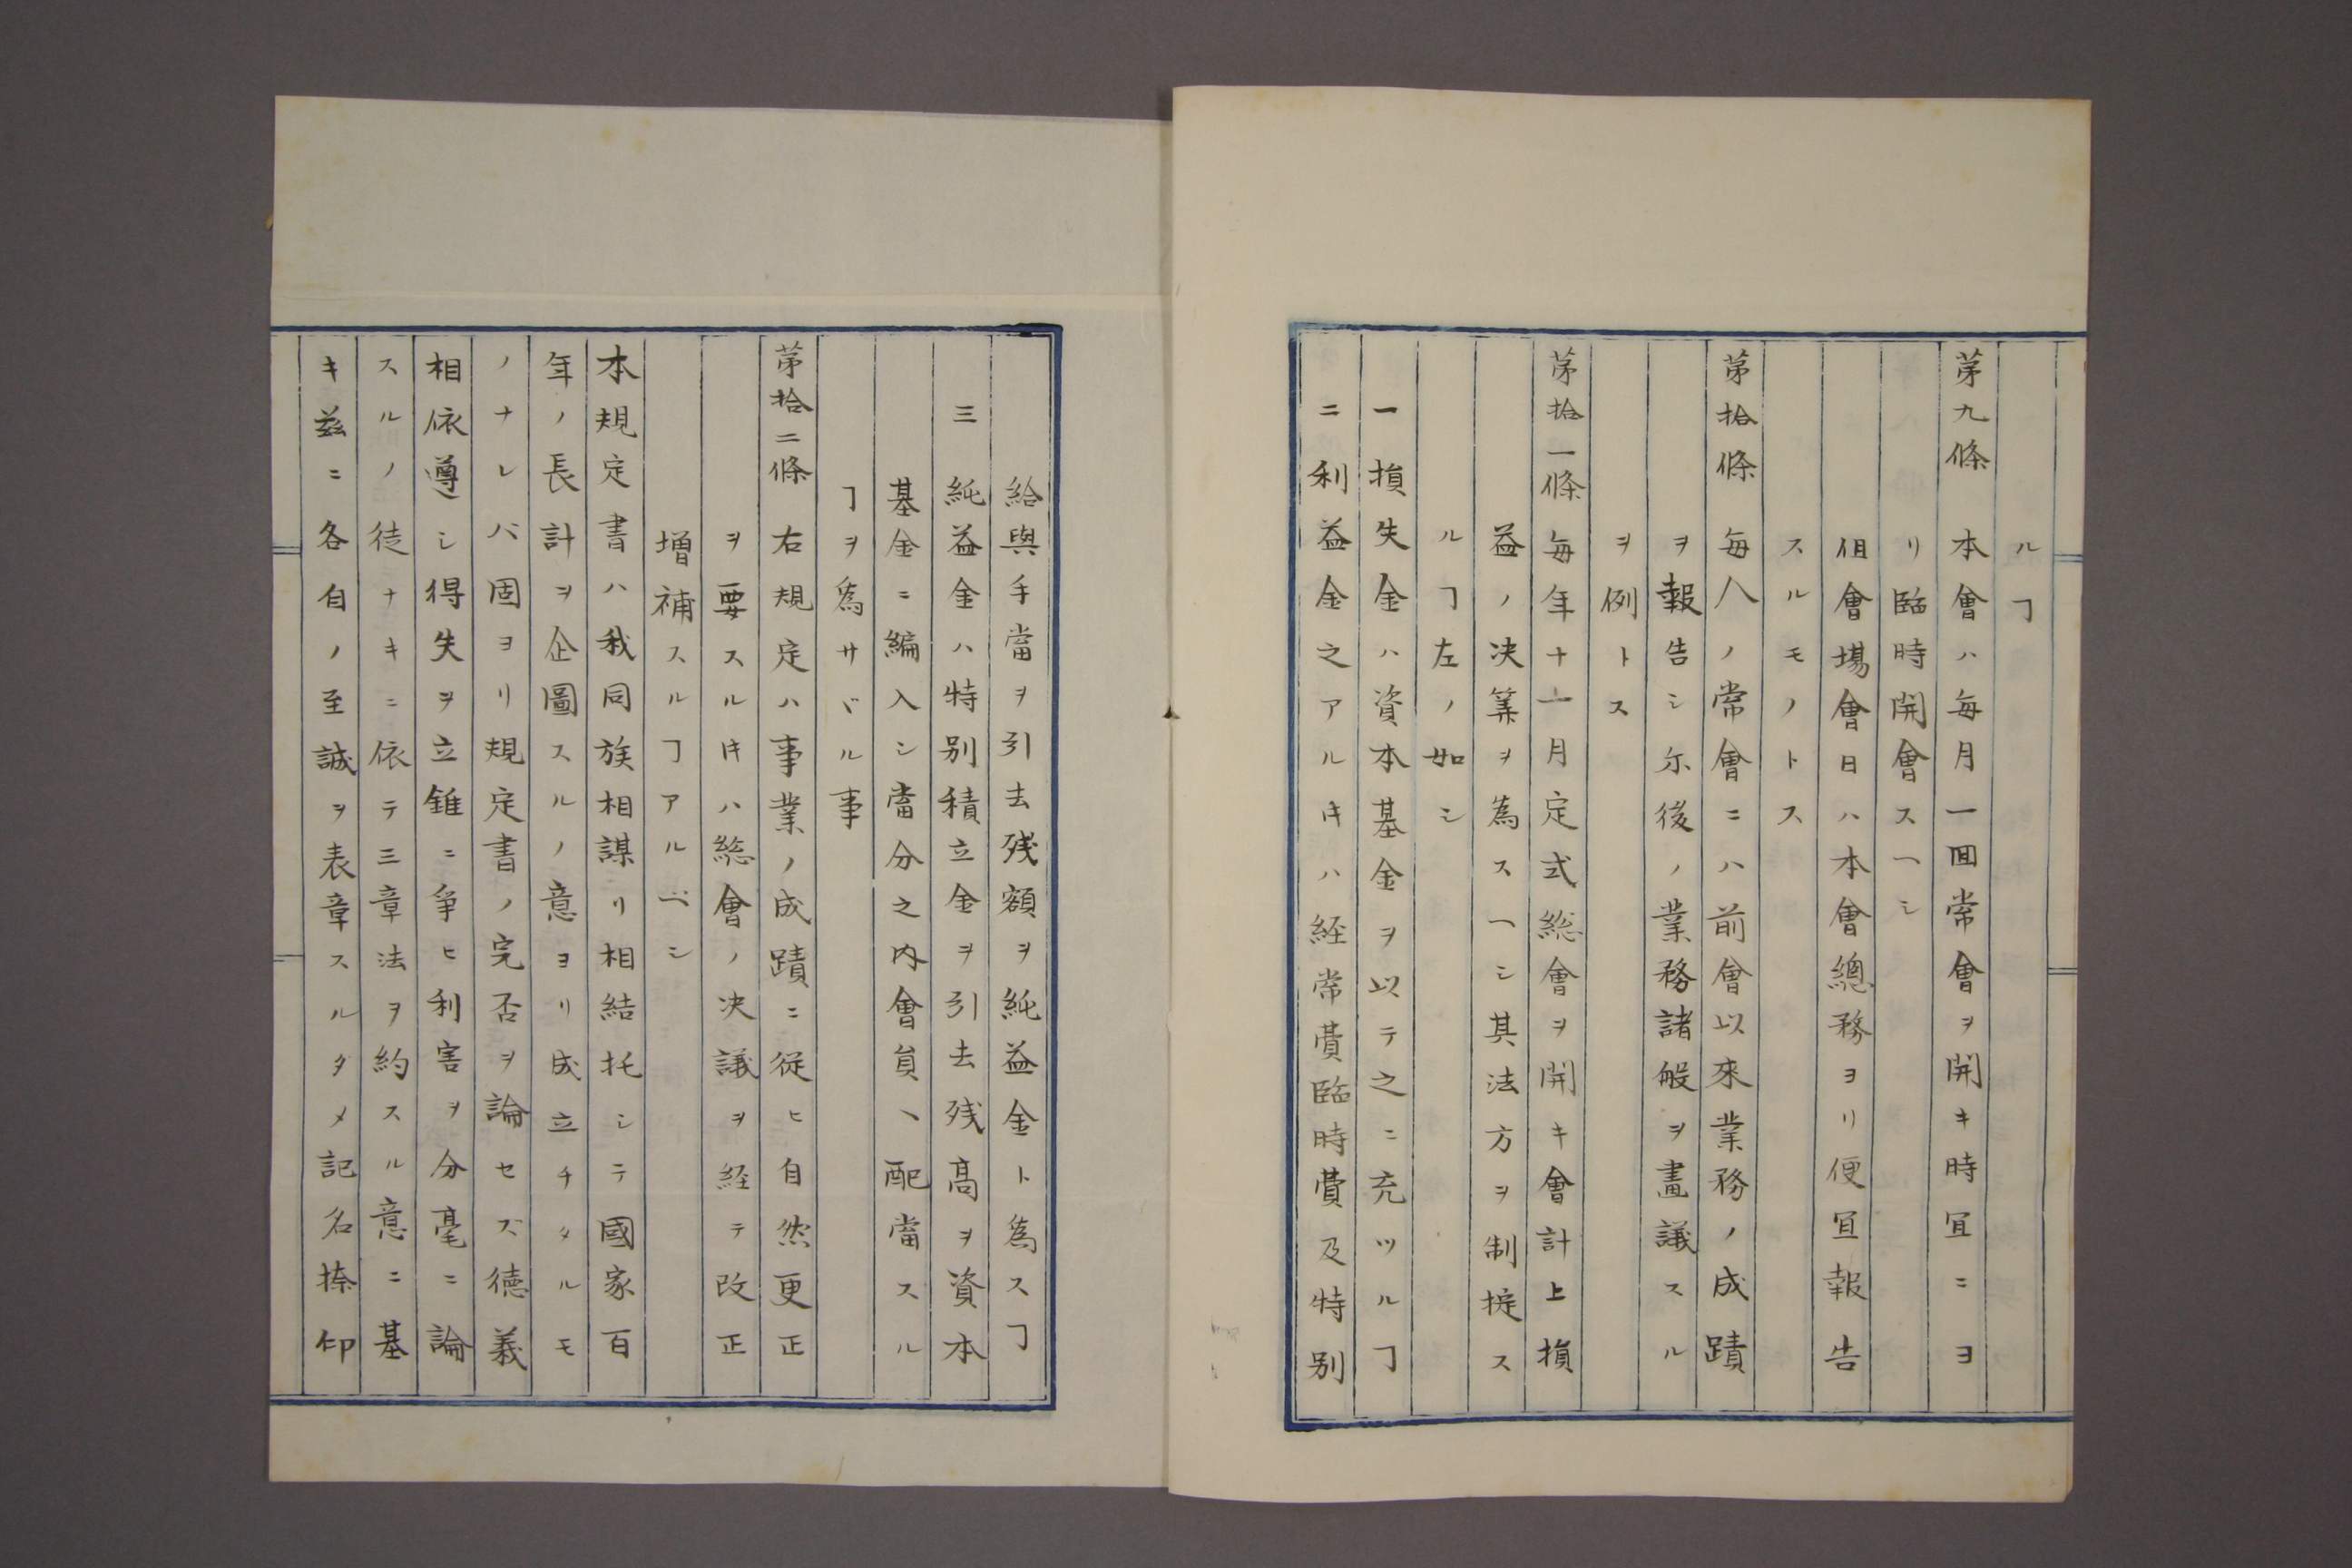 ルヿ
第九條　本會ハ毎月一回常會ヲ開キ時宜ニヨ
リ臨時開會スヘシ
但會場會日ハ本會總務ヨリ便宜報告
スルモノトス
第拾條　毎八ノ常會ニハ前會以來業務ノ成蹟
ヲ報告シ尓後ノ業務諸般ヲ畫議スル
ヲ例トス
第拾一條　毎年十一月定式総會ヲ開キ會計上損
益ノ决算ヲ為スヘシ其法方ヲ制掟ス
ルヿ左ノ如シ
一損失金ハ資本基金ヲ以テ之ニ充ツルヿ
二利益金之アルキハ経常費臨時費及特別
給與手當ヲ引去残額ヲ純益金ト為スヿ
三　純益金ハ特別積立金ヲ引去残高ヲ資本
基金ニ編入シ當分之内會員ヘ配當スル
ヿヲ為サヾル事
第拾二條　右規定ハ事業ノ成蹟ニ従ヒ自然更正
ヲ要スルキハ総會ノ决議ヲ経テ改正
増補スルヿアルベシ
本規定書ハ我同族相謀リ相結托シテ國家百
年ノ長計ヲ企圖スルノ意ヨリ成立チタルモ
ノナレバ固ヨリ規定書ノ完否ヲ論セズ徳義
相依遵シ得失ヲ立錐ニ爭ヒ利害ヲ分毫ニ論
スルノ徒ナキニ依テ三章法ヲ約スル意ニ基
キ玆ニ各自ノ至誠ヲ表章スルタメ記名捺印